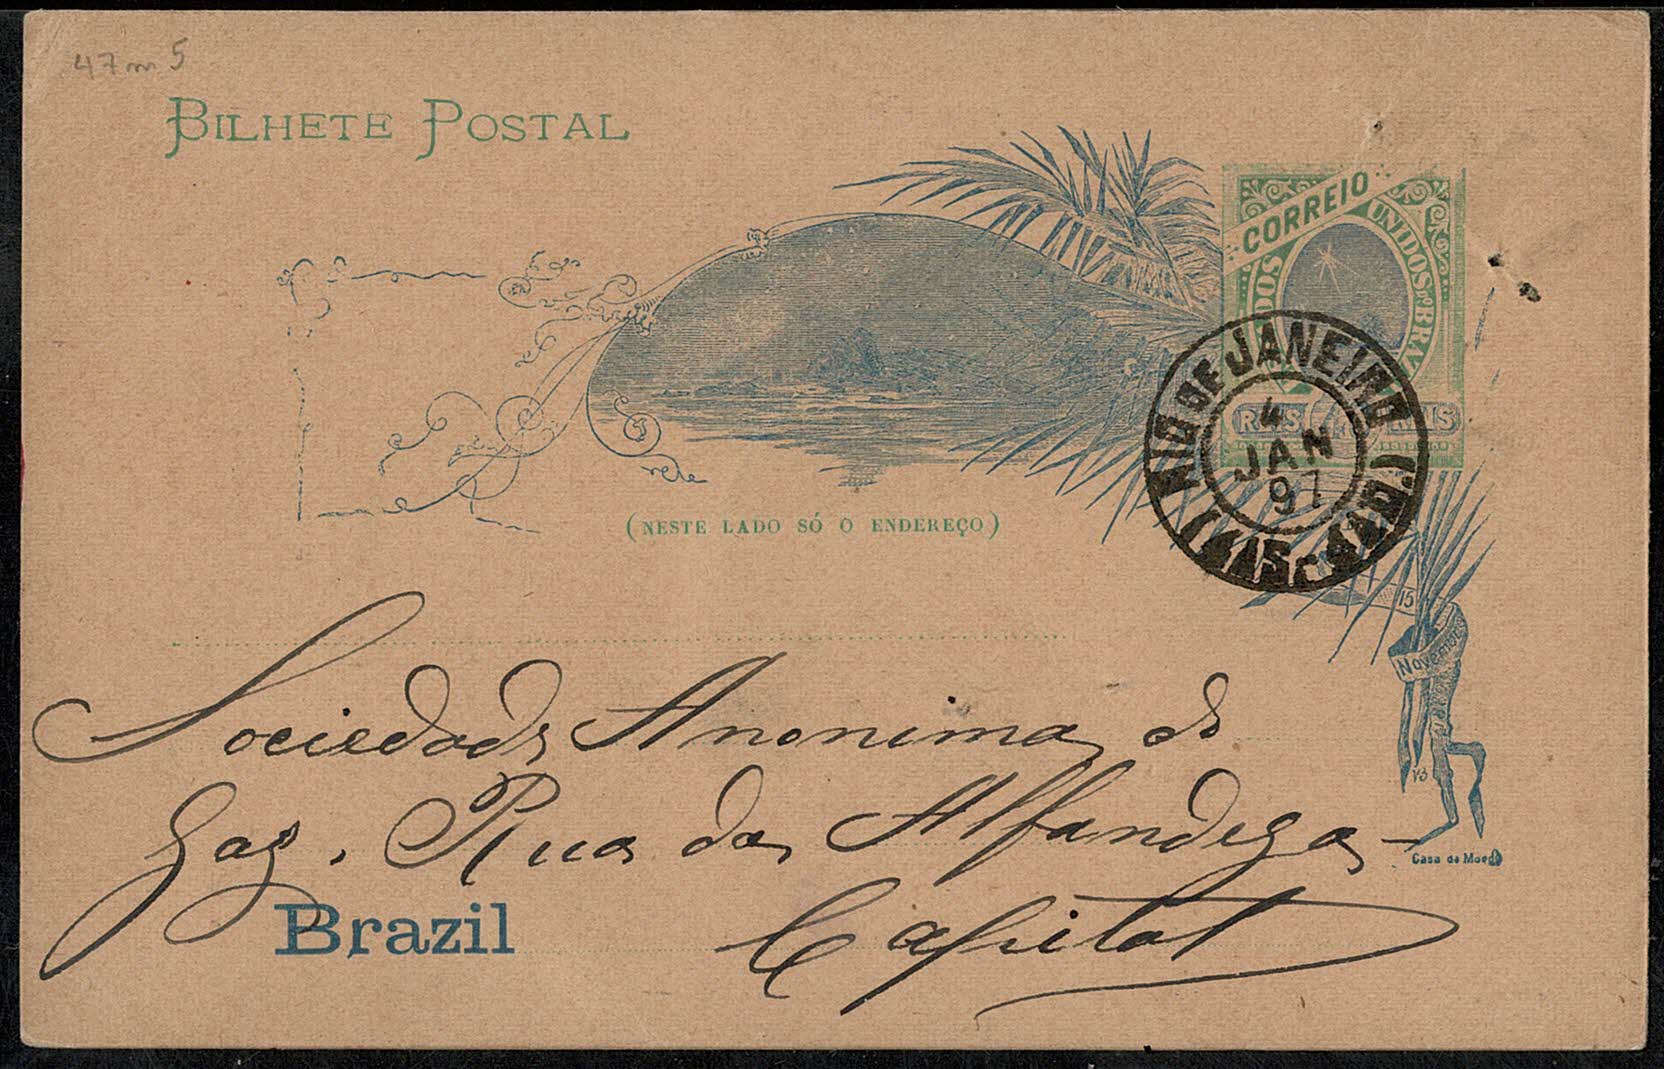 47 m 5
BILHETE POSTAL
CORREIO
UNIDOS DO BRA
REIS REIS
RIO DE JANEIRO
4
JAN
97
(NESTE LADO SÓ O ENDEREÇO)
15
Novembro
Casa da Moeda
Sociedade Anonima do
Gaz. Rua da Alfandega
Capital
Brazil